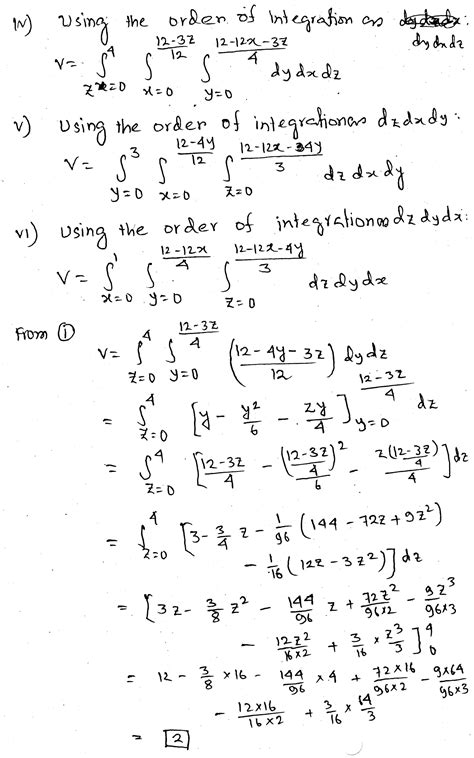 iv) Using the order of Integration as dydxdz:
V = ∫_{z=0}^{4} ∫_{x=0}^{(12-3z)/12} ∫_{y=0}^{(12-12x-3z)/4} dy dx dz
v) Using the order of integration as dzdxdy:
V = ∫_{y=0}^{3} ∫_{x=0}^{(12-4y)/12} ∫_{z=0}^{(12-12x-4y)/3} dz dx dy
vi) Using the order of integration as dzdydx:
V = ∫_{x=0}^{1} ∫_{y=0}^{(12-12x)/4} ∫_{z=0}^{(12-12x-4y)/3} dz dy dx
From ①
V = ∫_{z=0}^{4} ∫_{y=0}^{(12-3z)/4} ((12-4y-3z)/12) dy dz
= ∫_{z=0}^{4} [y - y²/6 - zy/4]_{y=0}^{(12-3z)/4} dz
= ∫_{z=0}^{4} [(12-3z)/4 - ((12-3z)/4)²/6 - (z(12-3z)/4)/4] dz
= ∫_{z=0}^{4} [3 - 3/4 z - 1/96 (144 - 72z + 9z²)
- 1/16 (12z - 3z²)] dz
= [3z - 3/8 z² - 144/96 z + 72z²/96×2 - 9z³/96×3
- 12z²/16×2 + 3/16 × z³/3]_0^4
= 12 - 3/8 × 16 - 144/96 × 4 + 72×16/96×2 - 9×64/96×3
- 12×16/16×2 + 3/16 × 64/3
= 2